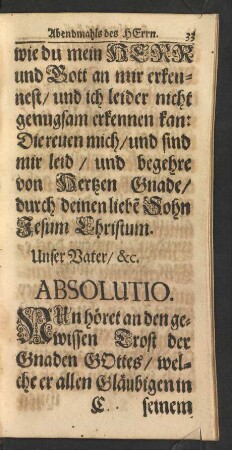 Abendmahls des HErrn. 33
wie du mein HERR
und Gott an mir erken-
nest/ und ich leider nicht
genugsam erkennen kan:
Die reuen mich/ und sind
mir leid / und begehre
von Hertzen Gnade/
durch deinen liebẽ Sohn
Jesum Christum.
Unser Vater/ &c.
ABSOLUTIO.
NUn höret an den ge-
wissen Trost der
Gnaden GOttes/ wel-
che er allen Gläubigen in
C seinem